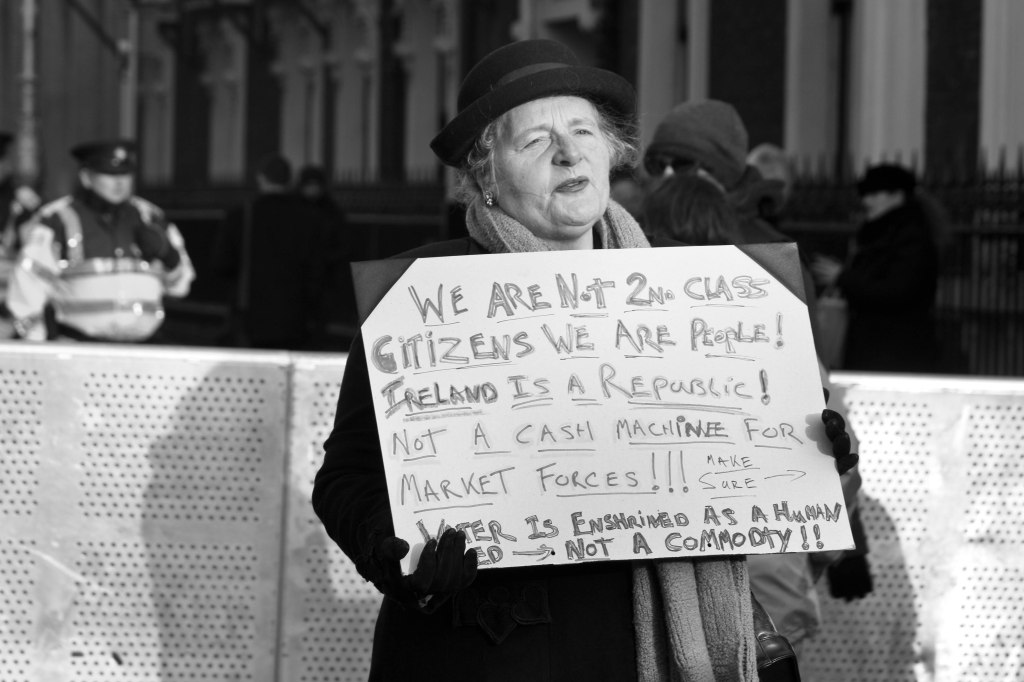 WE ARE NOT 2ND CLASS
CITIZENS WE ARE PEOPLE!
IRELAND IS A REPUBLIC!
NOT A CASH MACHINE FOR
MARKET FORCES!!! MAKE
SURE →
IS ENSHRINED AS A HUMAN
→ NOT A COMMODTY!!